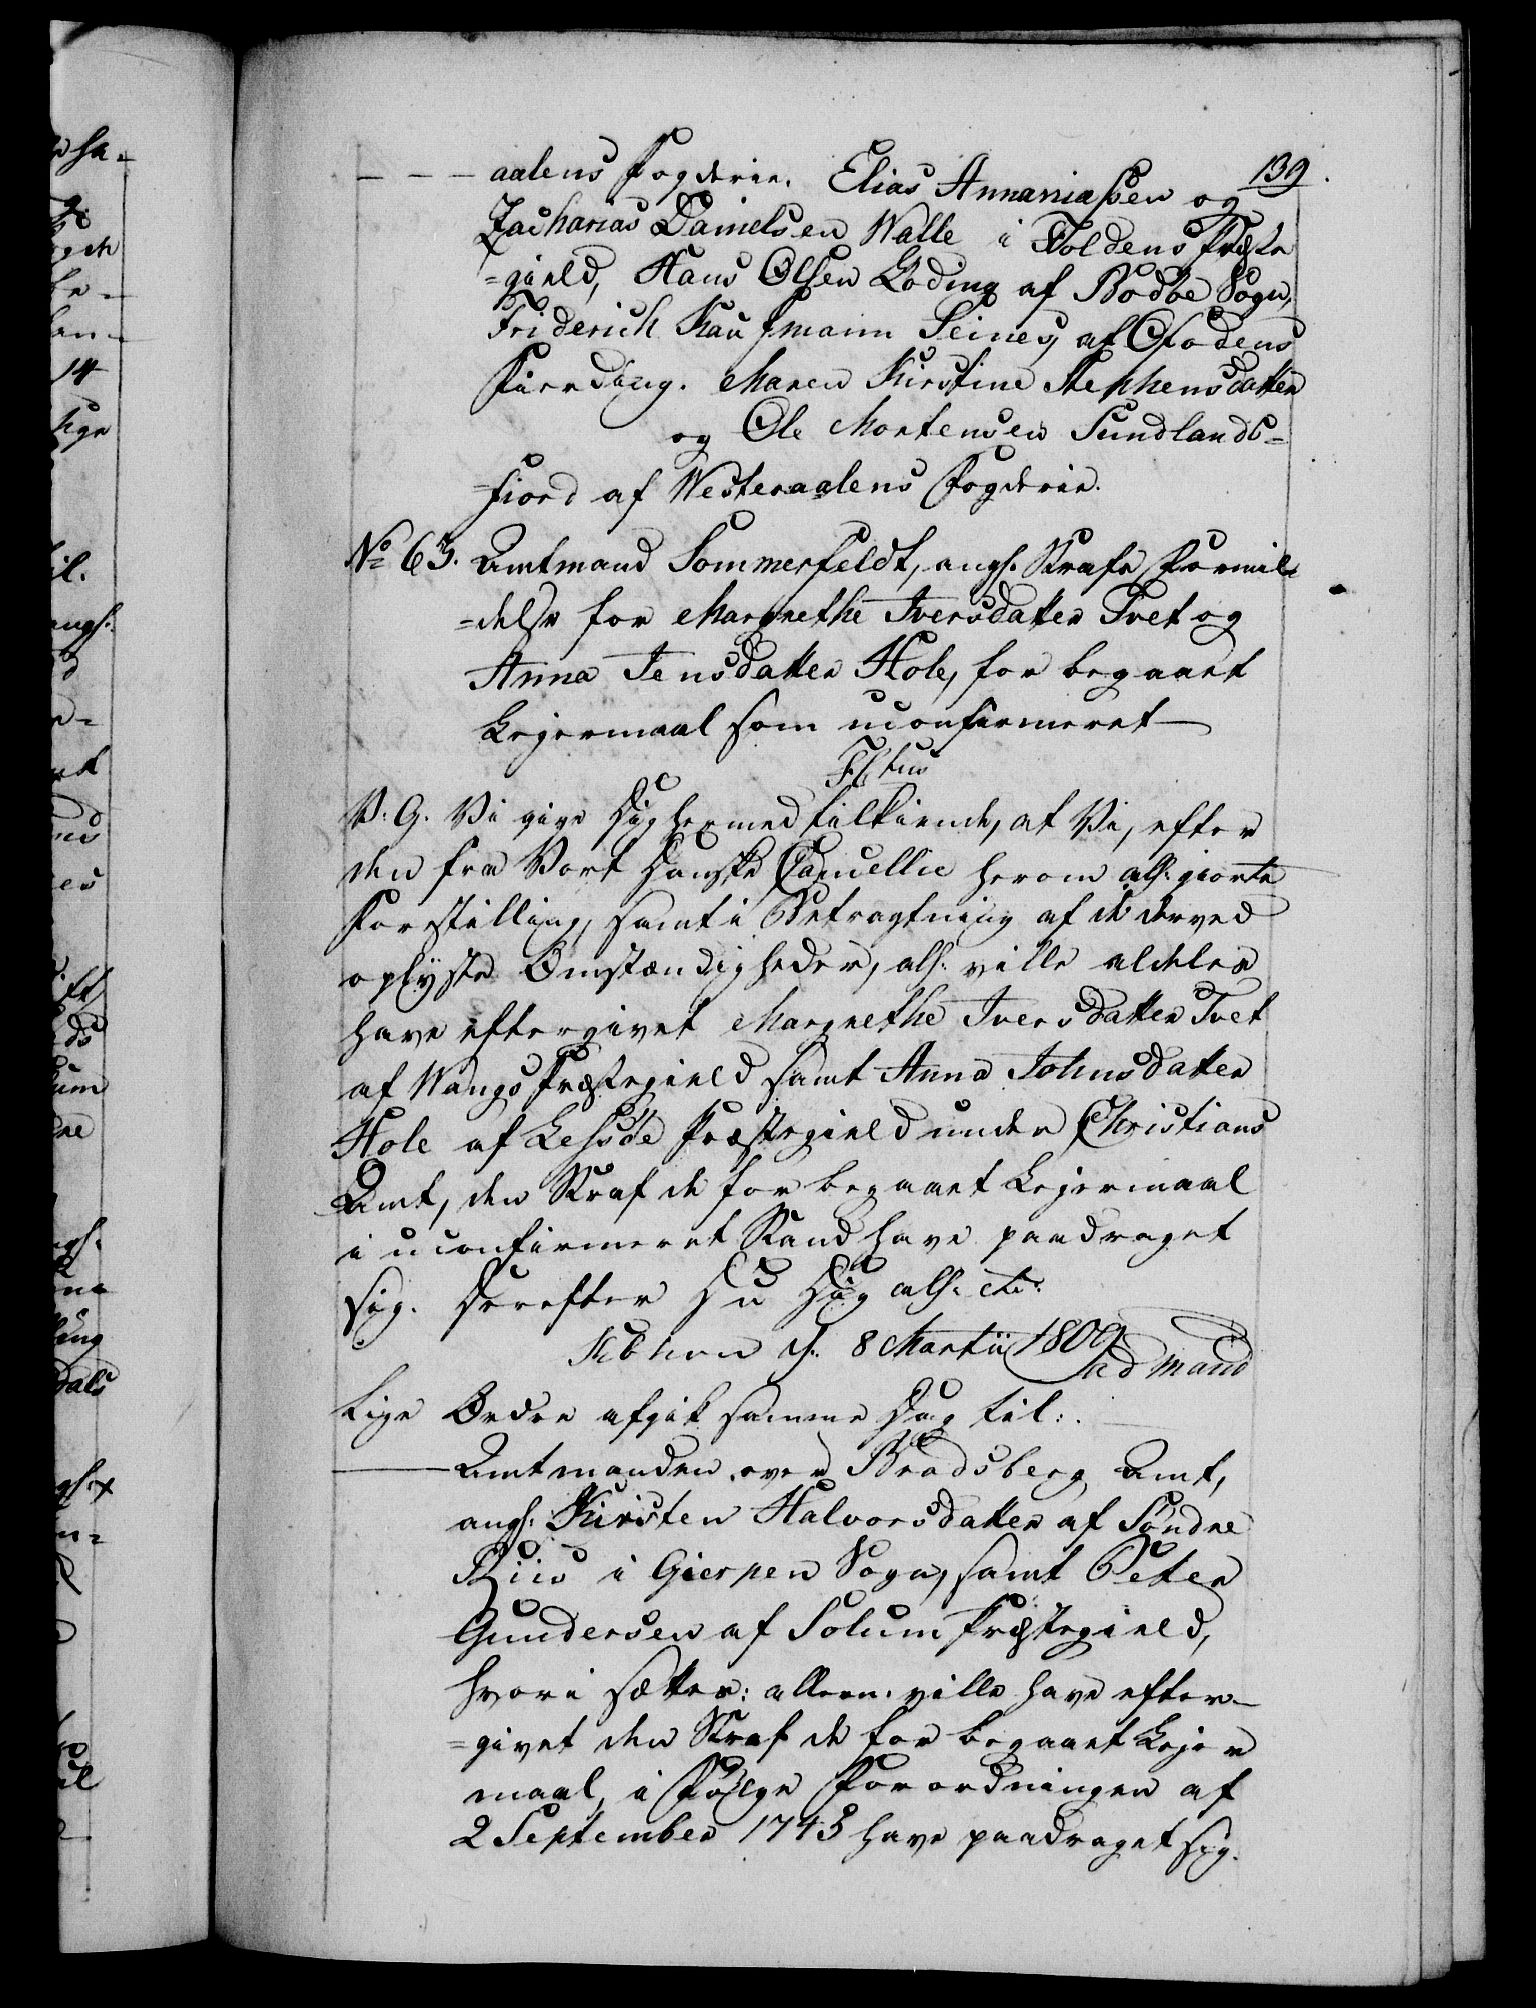 139.
- - - aalens Fogderie. Elias Annaniasen og
Zacharias Danielsen Walle i Foldens Præste
=gield, Hans Olsen Goding af Bodøe Sogn,
Friderich Kaufmann Seines, af Ofodens
Fierding. Maren Kirstine Stephensdatter
og Ole Mortensen Sundlands-
=fiord af Westeraalens Fogderie.
No 63. Amtmand Sommerfeldt, angl. Straf Formil
=delse for Margrethe Iversdatter Tvet og
Anna Jensdatter Hole, for begaaet
Lejermaal som uconfirmeret
Tit. tus
V. G. Vi give Dig hermed tilkiende, at Vi, efter
den fra Vort Danske Cancellie herom all. giorte
Forestilling, samt i Betragtning af de derved
oplyste Omstændigheder, all. ville aldeles
have eftergivet Margrethe Iversdatter Tvet
af Wangs Præstegield samt Anna Johnsdatter
Hole af Lessøe Præstegield under Christians
Amt, den Straf de for begaaet Lejermaal
i uconfirmeret Stand have paadraget
sig. Derefter Du Dig all. etc:
Kbhavn d. 8 Martii 1809
ad mand
Lige Ordre afgik samme Dag til:
Amtmanden over Bradsberg Amt,
angl. Kirsten Halvorsdatter af Søndre
i Gierpen Sogn, samt Peter
Gundersen af Solum Præstegield,
hvori sættes: allern. ville have efter-
=givet den Straf de for begaaet Lejer
maal, i Følge Forordningen af
2 September 1745 have paadraget sig.